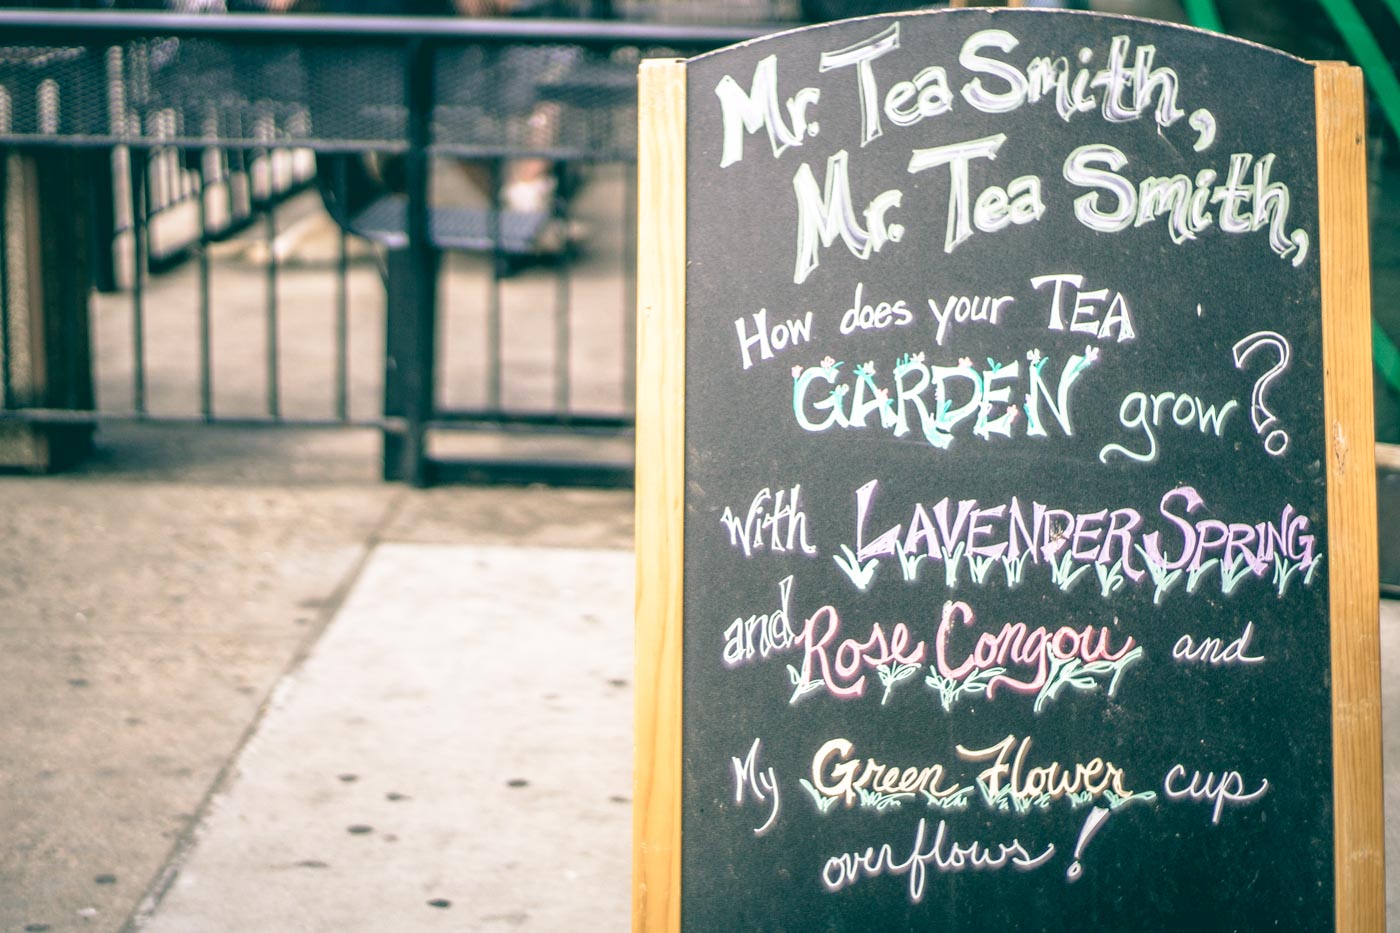 Mr. Tea Smith,
Mr. Tea Smith,
How does your TEA
GARDEN grow?
with LAVENDER SPRING
and Rose Congou and
My Green Flower cup
overflows!